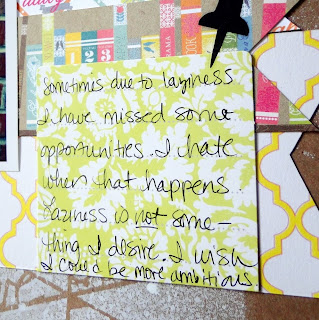 Sometimes due to laziness
I have missed some
opportunities. I hate
when that happens.
Laziness is not some-
thing I desire. I wish
I could be more ambitious.